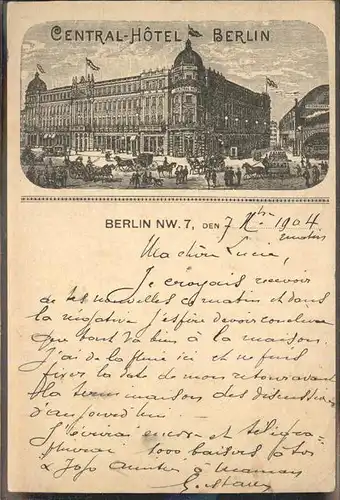 CENTRAL-HÔTEL BERLIN
BERLIN NW. 7, DEN 7 Xbre 1904
matin
Ma chère Lucie,
Je croyais recevoir
de tes nouvelles ce matin et dans
la négative j'espère devoir conclure
que tout va bien à la maison.
J'ai de la pluie ici et ne puis
fixer la date de mon retour avant
la terminaison des discussions
d'aujourd'hui.
J'écrirai encore et télégra-
phierai 1000 baisers à toi
& Jojo amitiés à Maman
Gustave